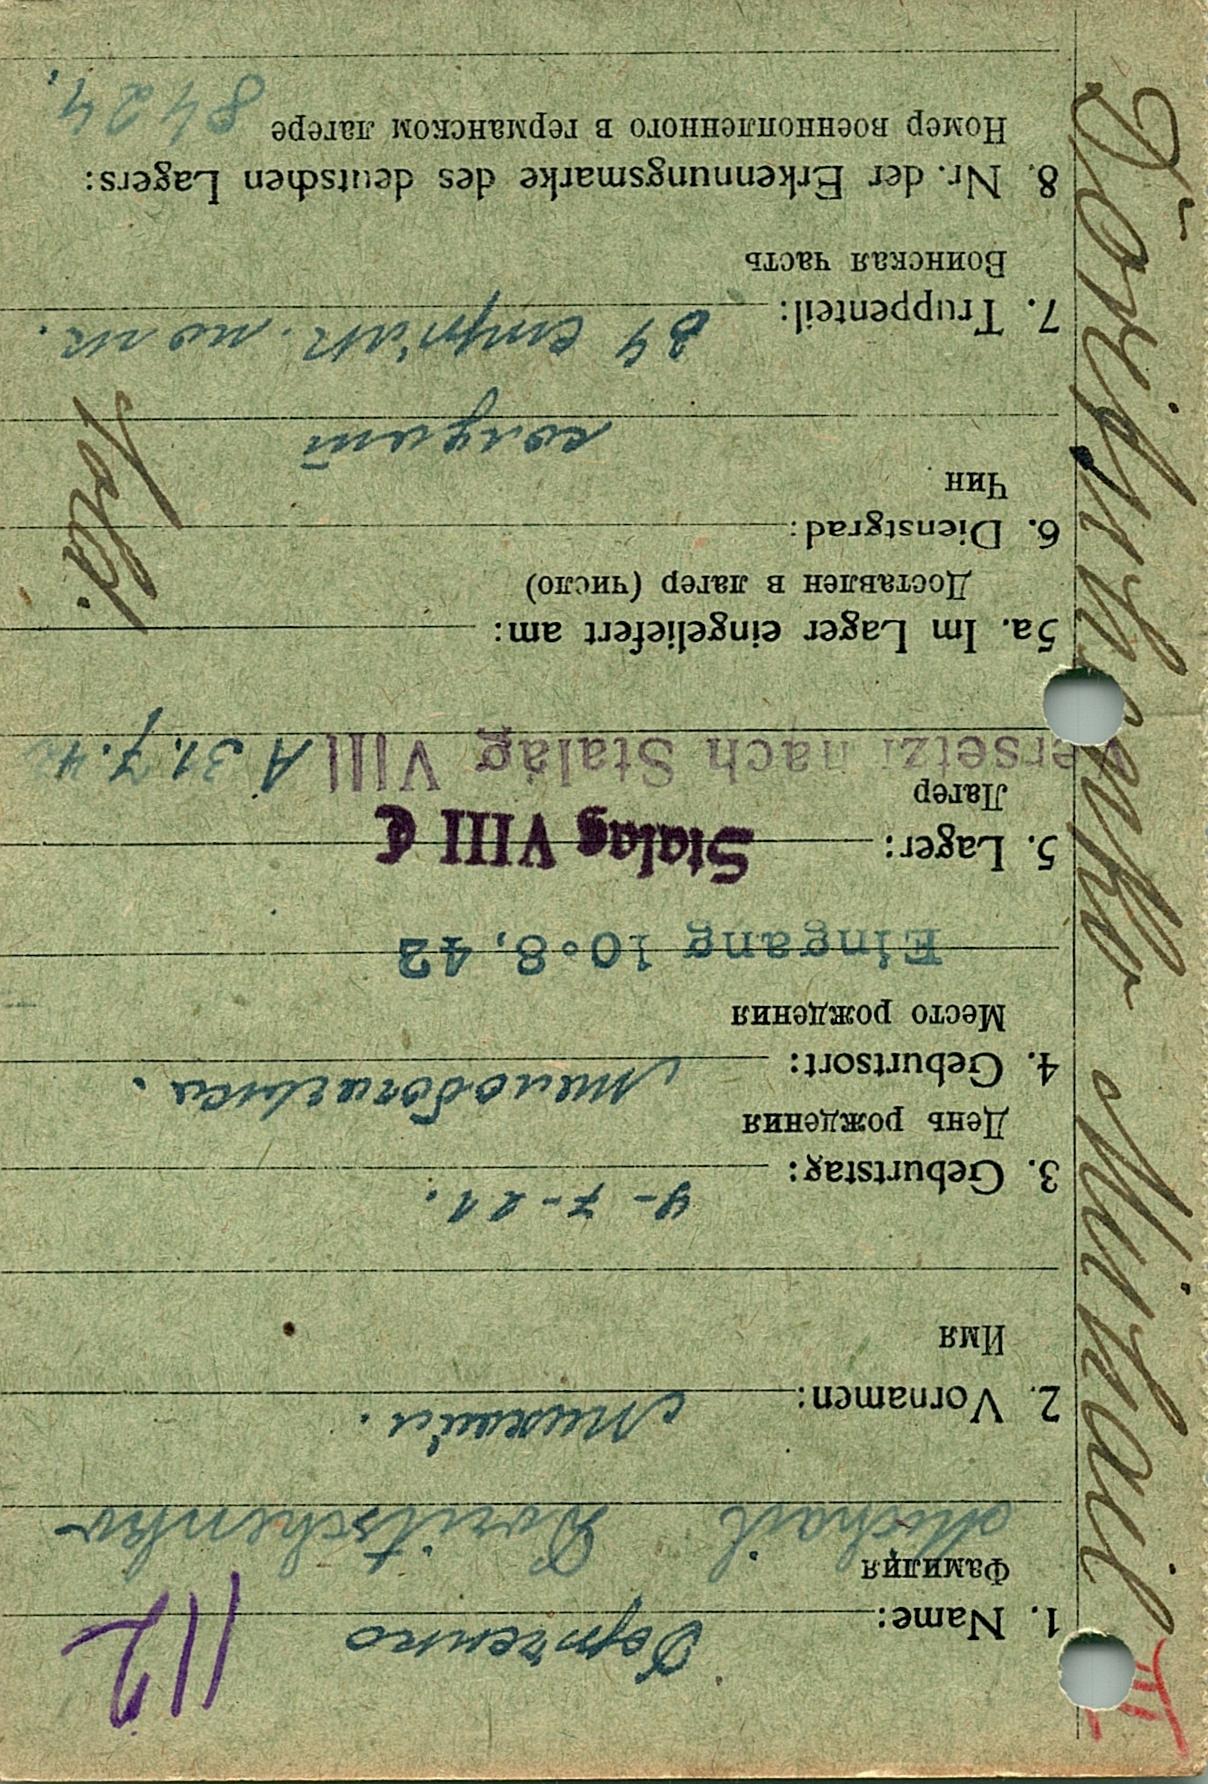 112
1. Name:
Фамилия
Michail Doritschenko
2. Vornamen: Михаил.
Имя
3. Geburtstag:
День рождения
4. Geburtsort:
Место рождения
Eingang 10.8.42
5. Lager: Stalag VIII C
Лагер
Versetzt nach Stalag VIII A 31.7.42
5a. Im Lager eingeliefert am:
Доставлен в лагер (число)
6. Dienstgrad:
Чин
солдат
Sold.
7. Truppenteil: 84
Воинская часть
8. Nr. der Erkennungsmarke des deutschen Lagers:
Номер военнопленного в германском лагере 8424.
Doritschenko Michail
III